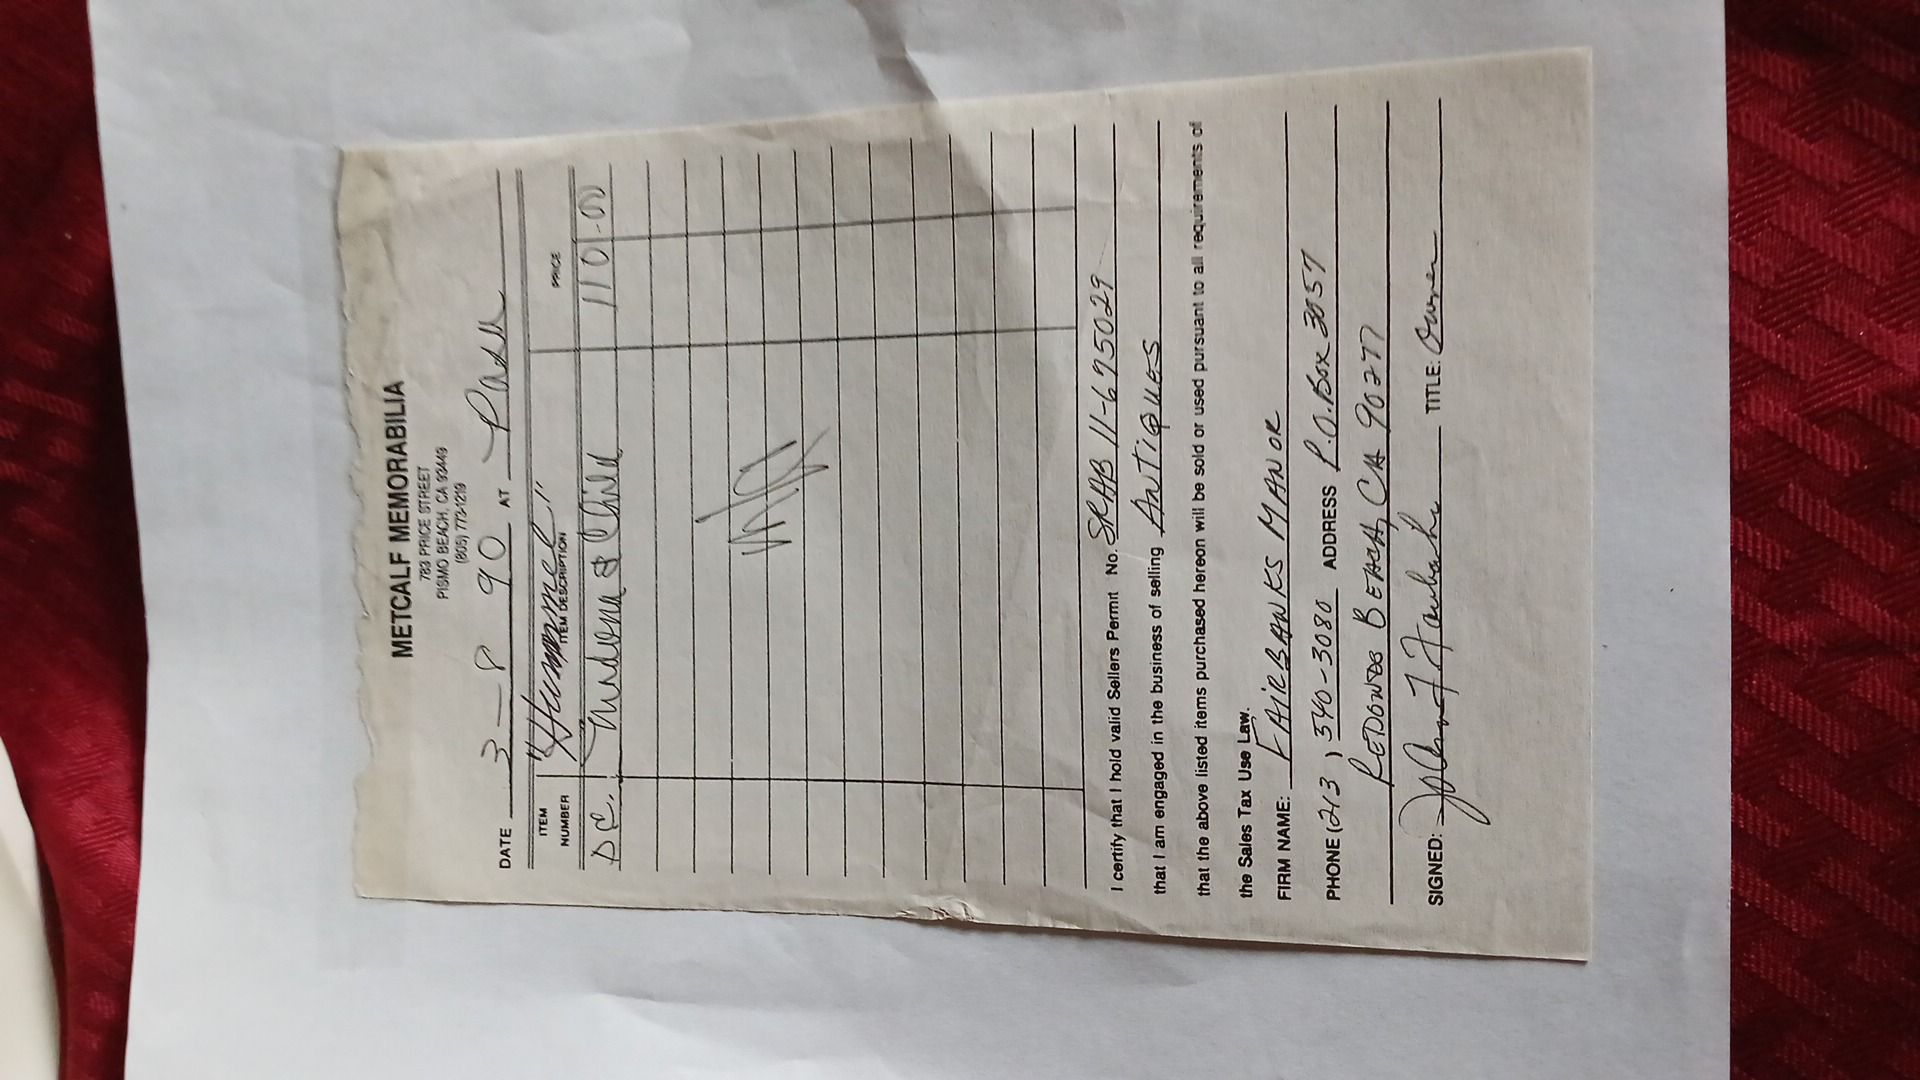 METCALF MEMORABILIA
783 PRICE STREET
PISMO BEACH, CA 93449
(805) 773-1219
DATE 3 - 8 90 AT
"Hummel"
ITEM NUMBER ITEM DESCRIPTION PRICE
DC. Madonna & Child 1100.00
I certify that I hold valid Sellers Permit No. SRAB 11-695029
that I am engaged in the business of selling ANTIQUES
that the above listed items purchased hereon will be sold or used pursuant to all requirements of
the Sales Tax Use Law.
FIRM NAME: FAIRBANKS MANOR
PHONE (213) 540-3080 ADDRESS P.O. BOX 3057
REDONDO BEACH, CA 90277
SIGNED: TITLE: Owner